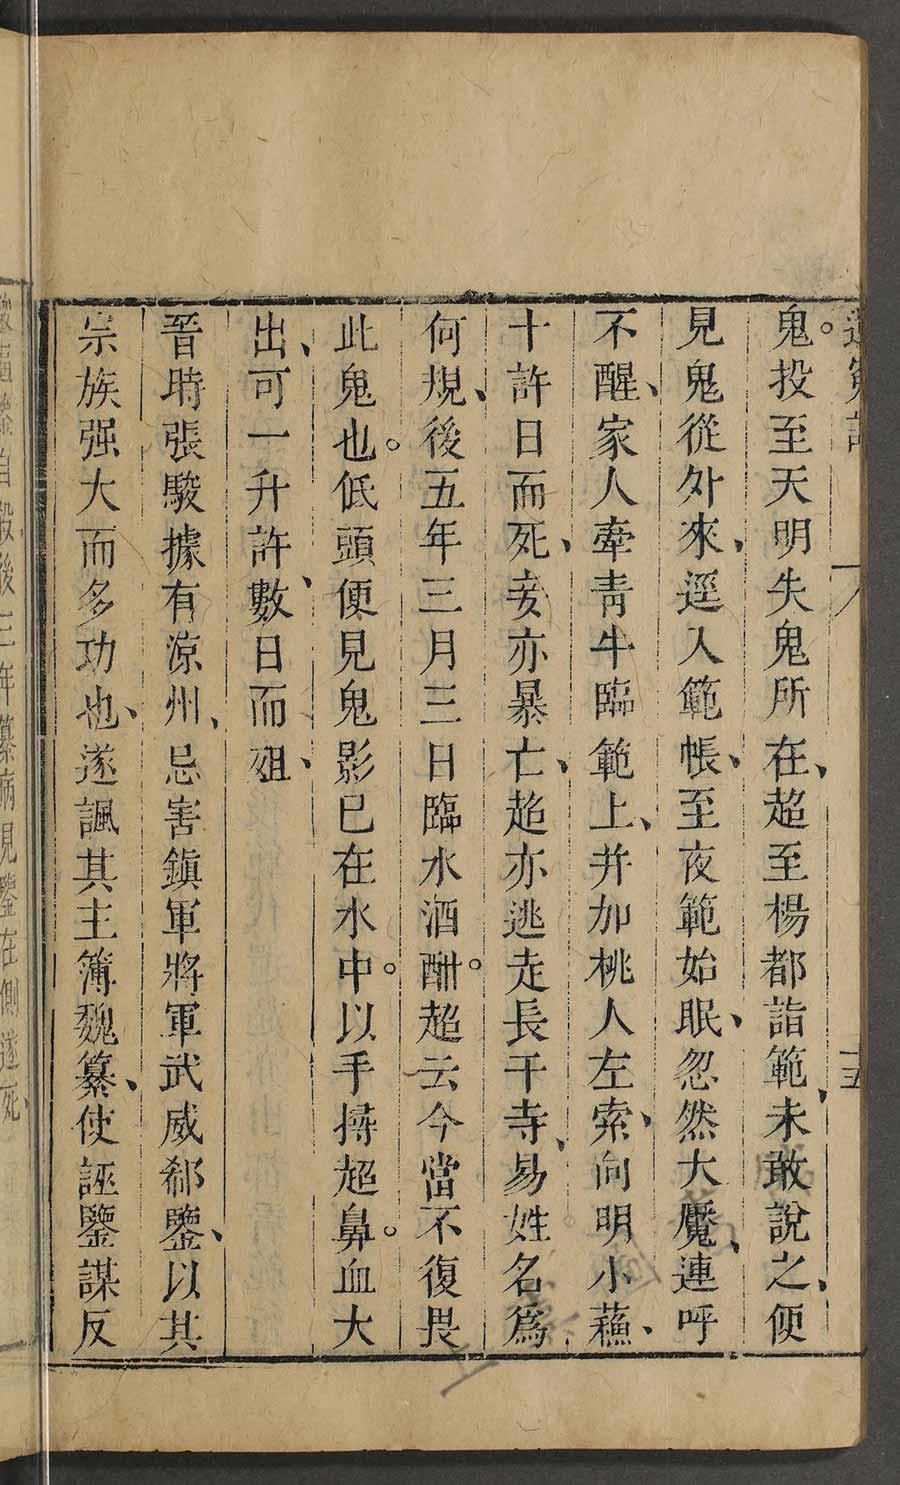 鬼。投至天明失鬼所在、超至楊都詣範、未敢說之、便
見鬼從外來、逕入範帳、至夜範始眠、忽然大魘、連呼
不醒、家人牽青牛臨範上、并加桃人左索、向明小蘓、
十許日而死、妾亦暴亡、超亦逃走長干寺、易姓名爲
何規、後五年三月三日臨水酒酣。超云今當不復畏
此鬼也。低頭便見鬼影已在水中。以手搏超鼻。血大
出、可一升許、數日而殂、
晉時張駿據有涼州、忌害鎮軍將軍武威郗鑒、以其
宗族强大而多功也、遂諷其主簿魏纂、使誣鑒謀反
駿逼鑒自殺後三年纂病見鑒在側遂死、